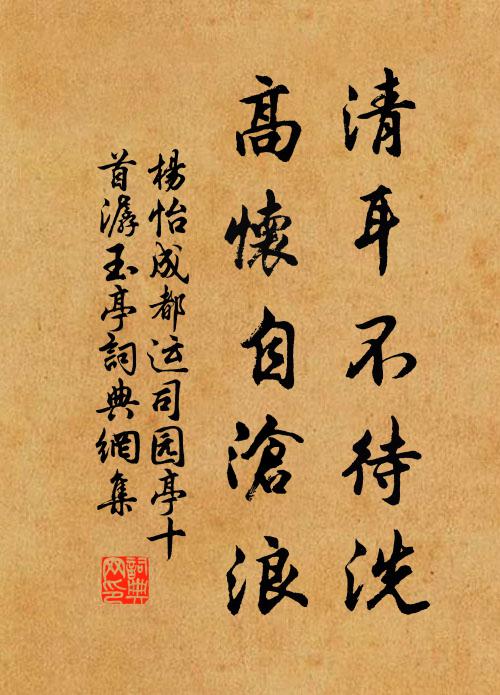 清耳不待洗
高懷自滄浪
楊怡成都运司园亭十
首潺玉亭詞典網集
詞典网印